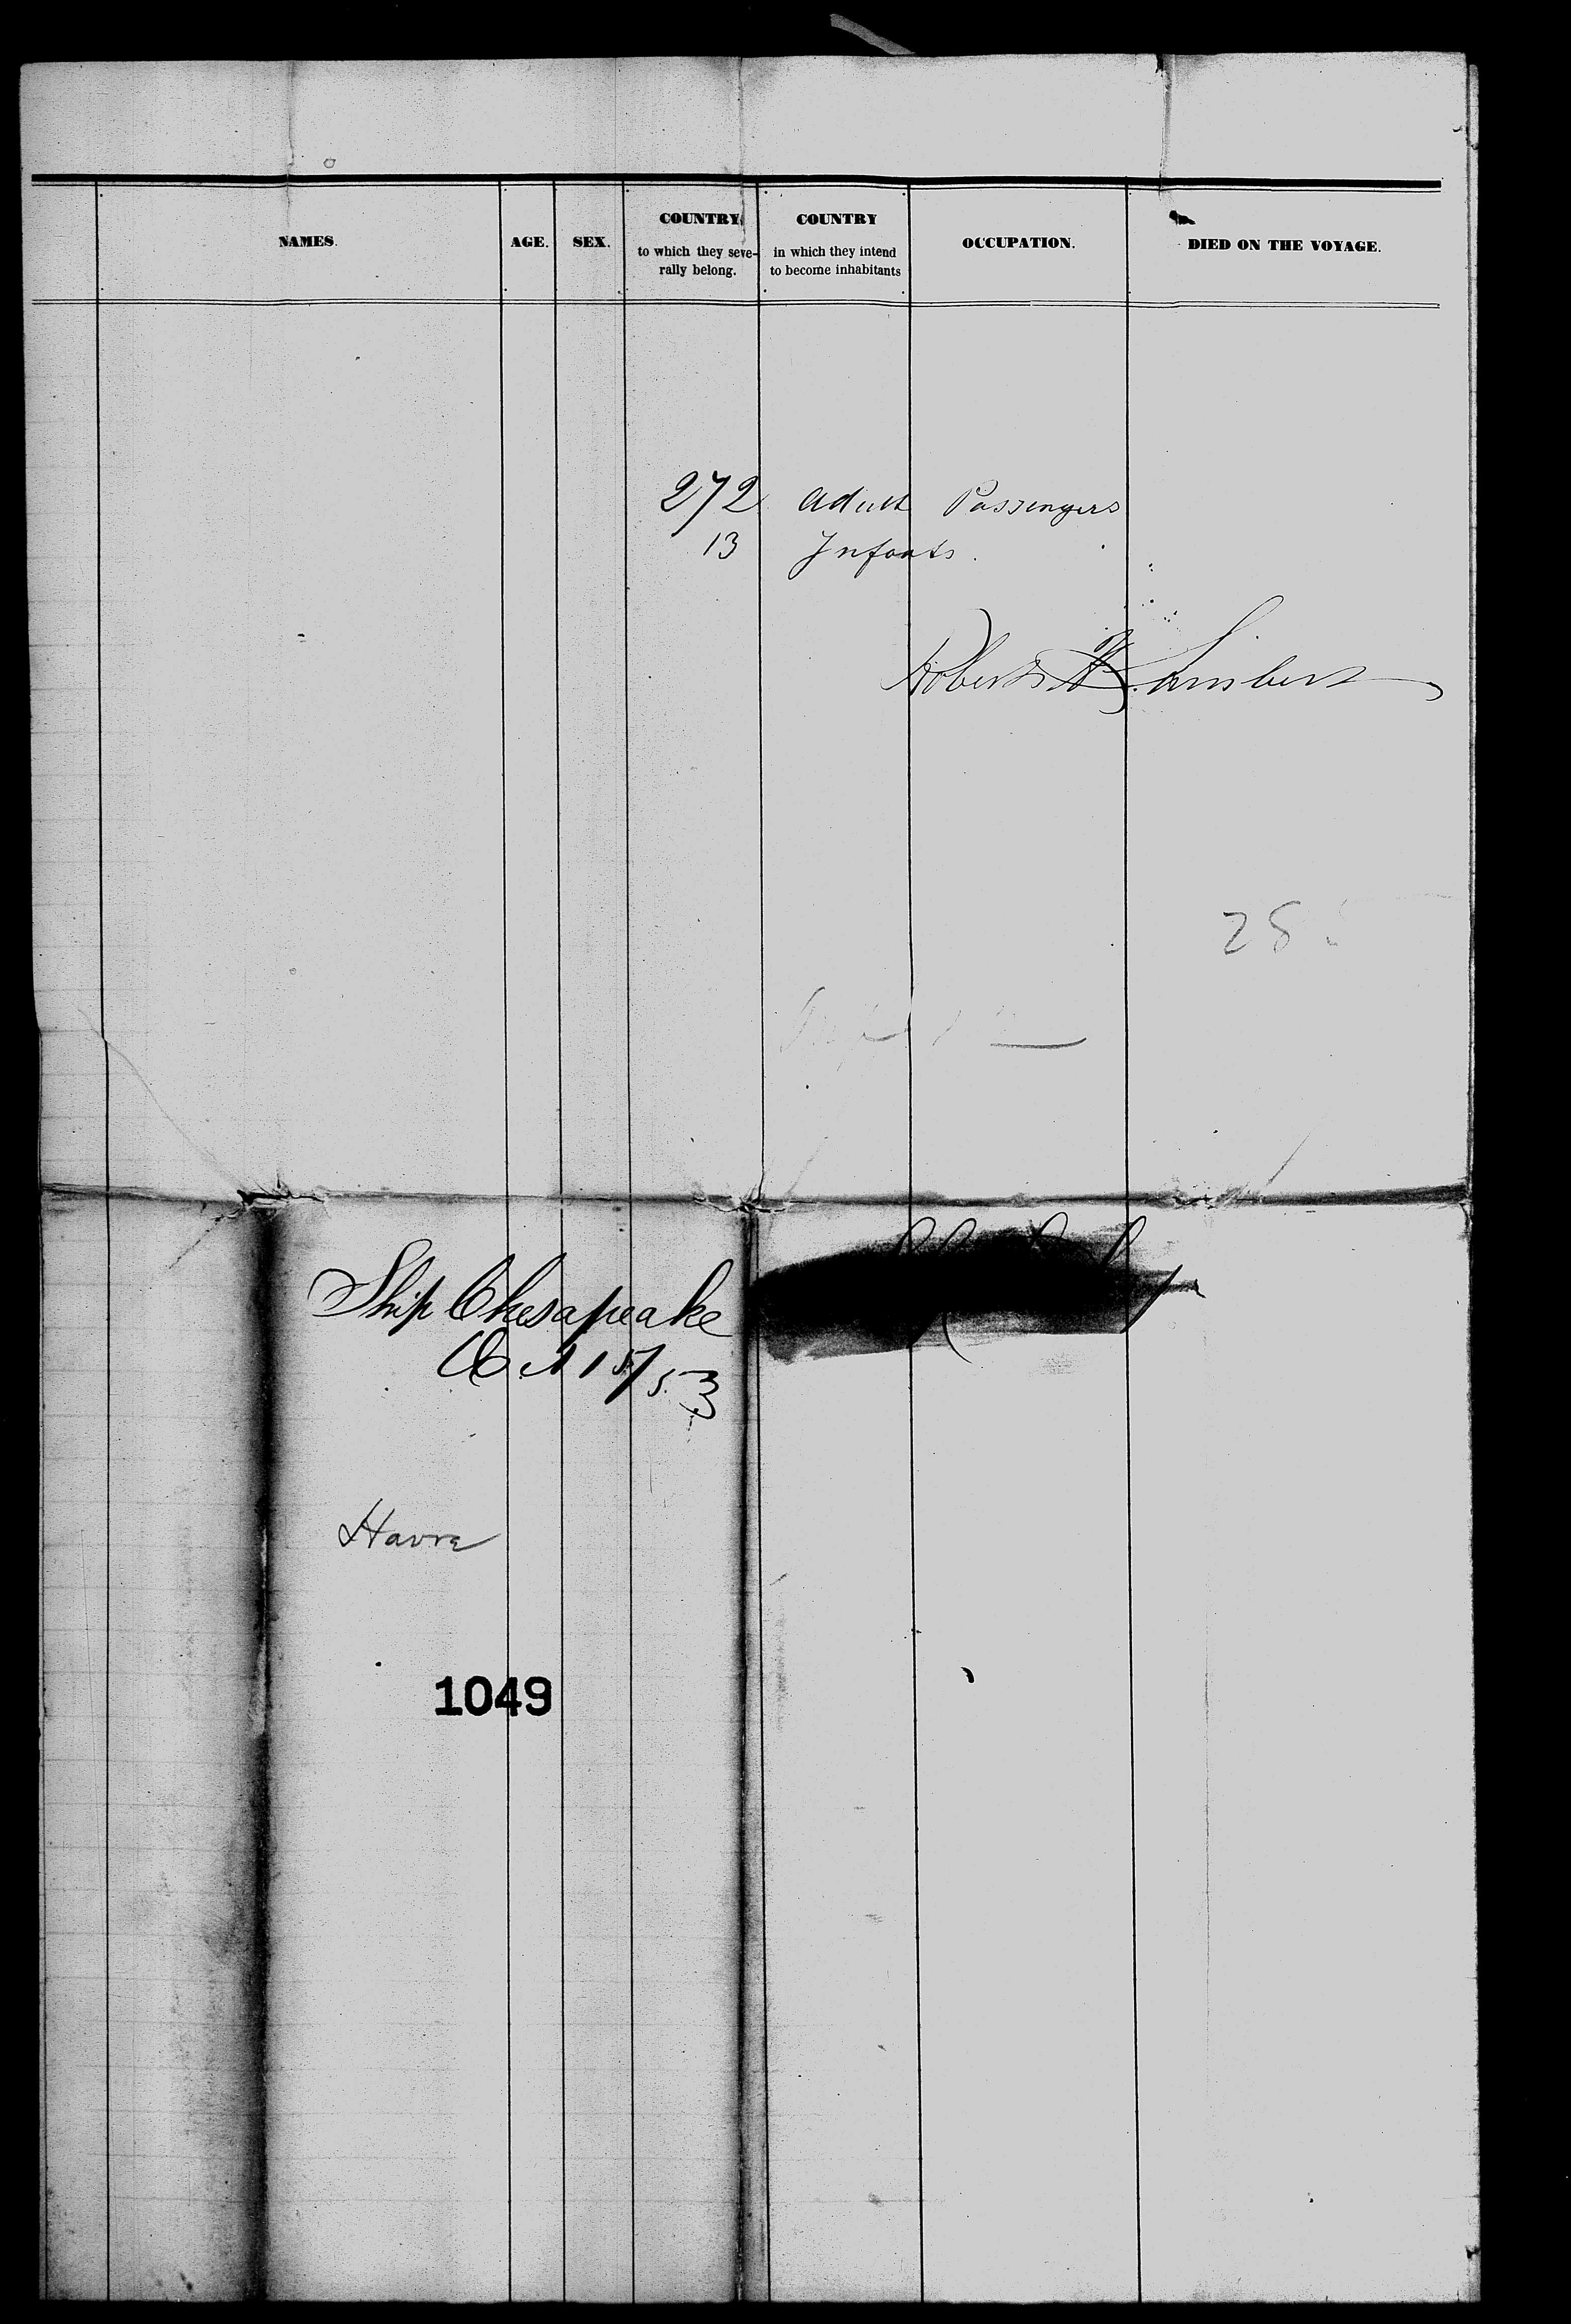 NAMES. AGE. SEX. COUNTRY, to which they seve- rally belong. COUNTRY in which they intend to become inhabitants OCCUPATION. DIED ON THE VOYAGE.
272 Adult Passengers
13 Infants.
Robert
28
Ship Chesapeake
Oct 15/53
Havre
1049